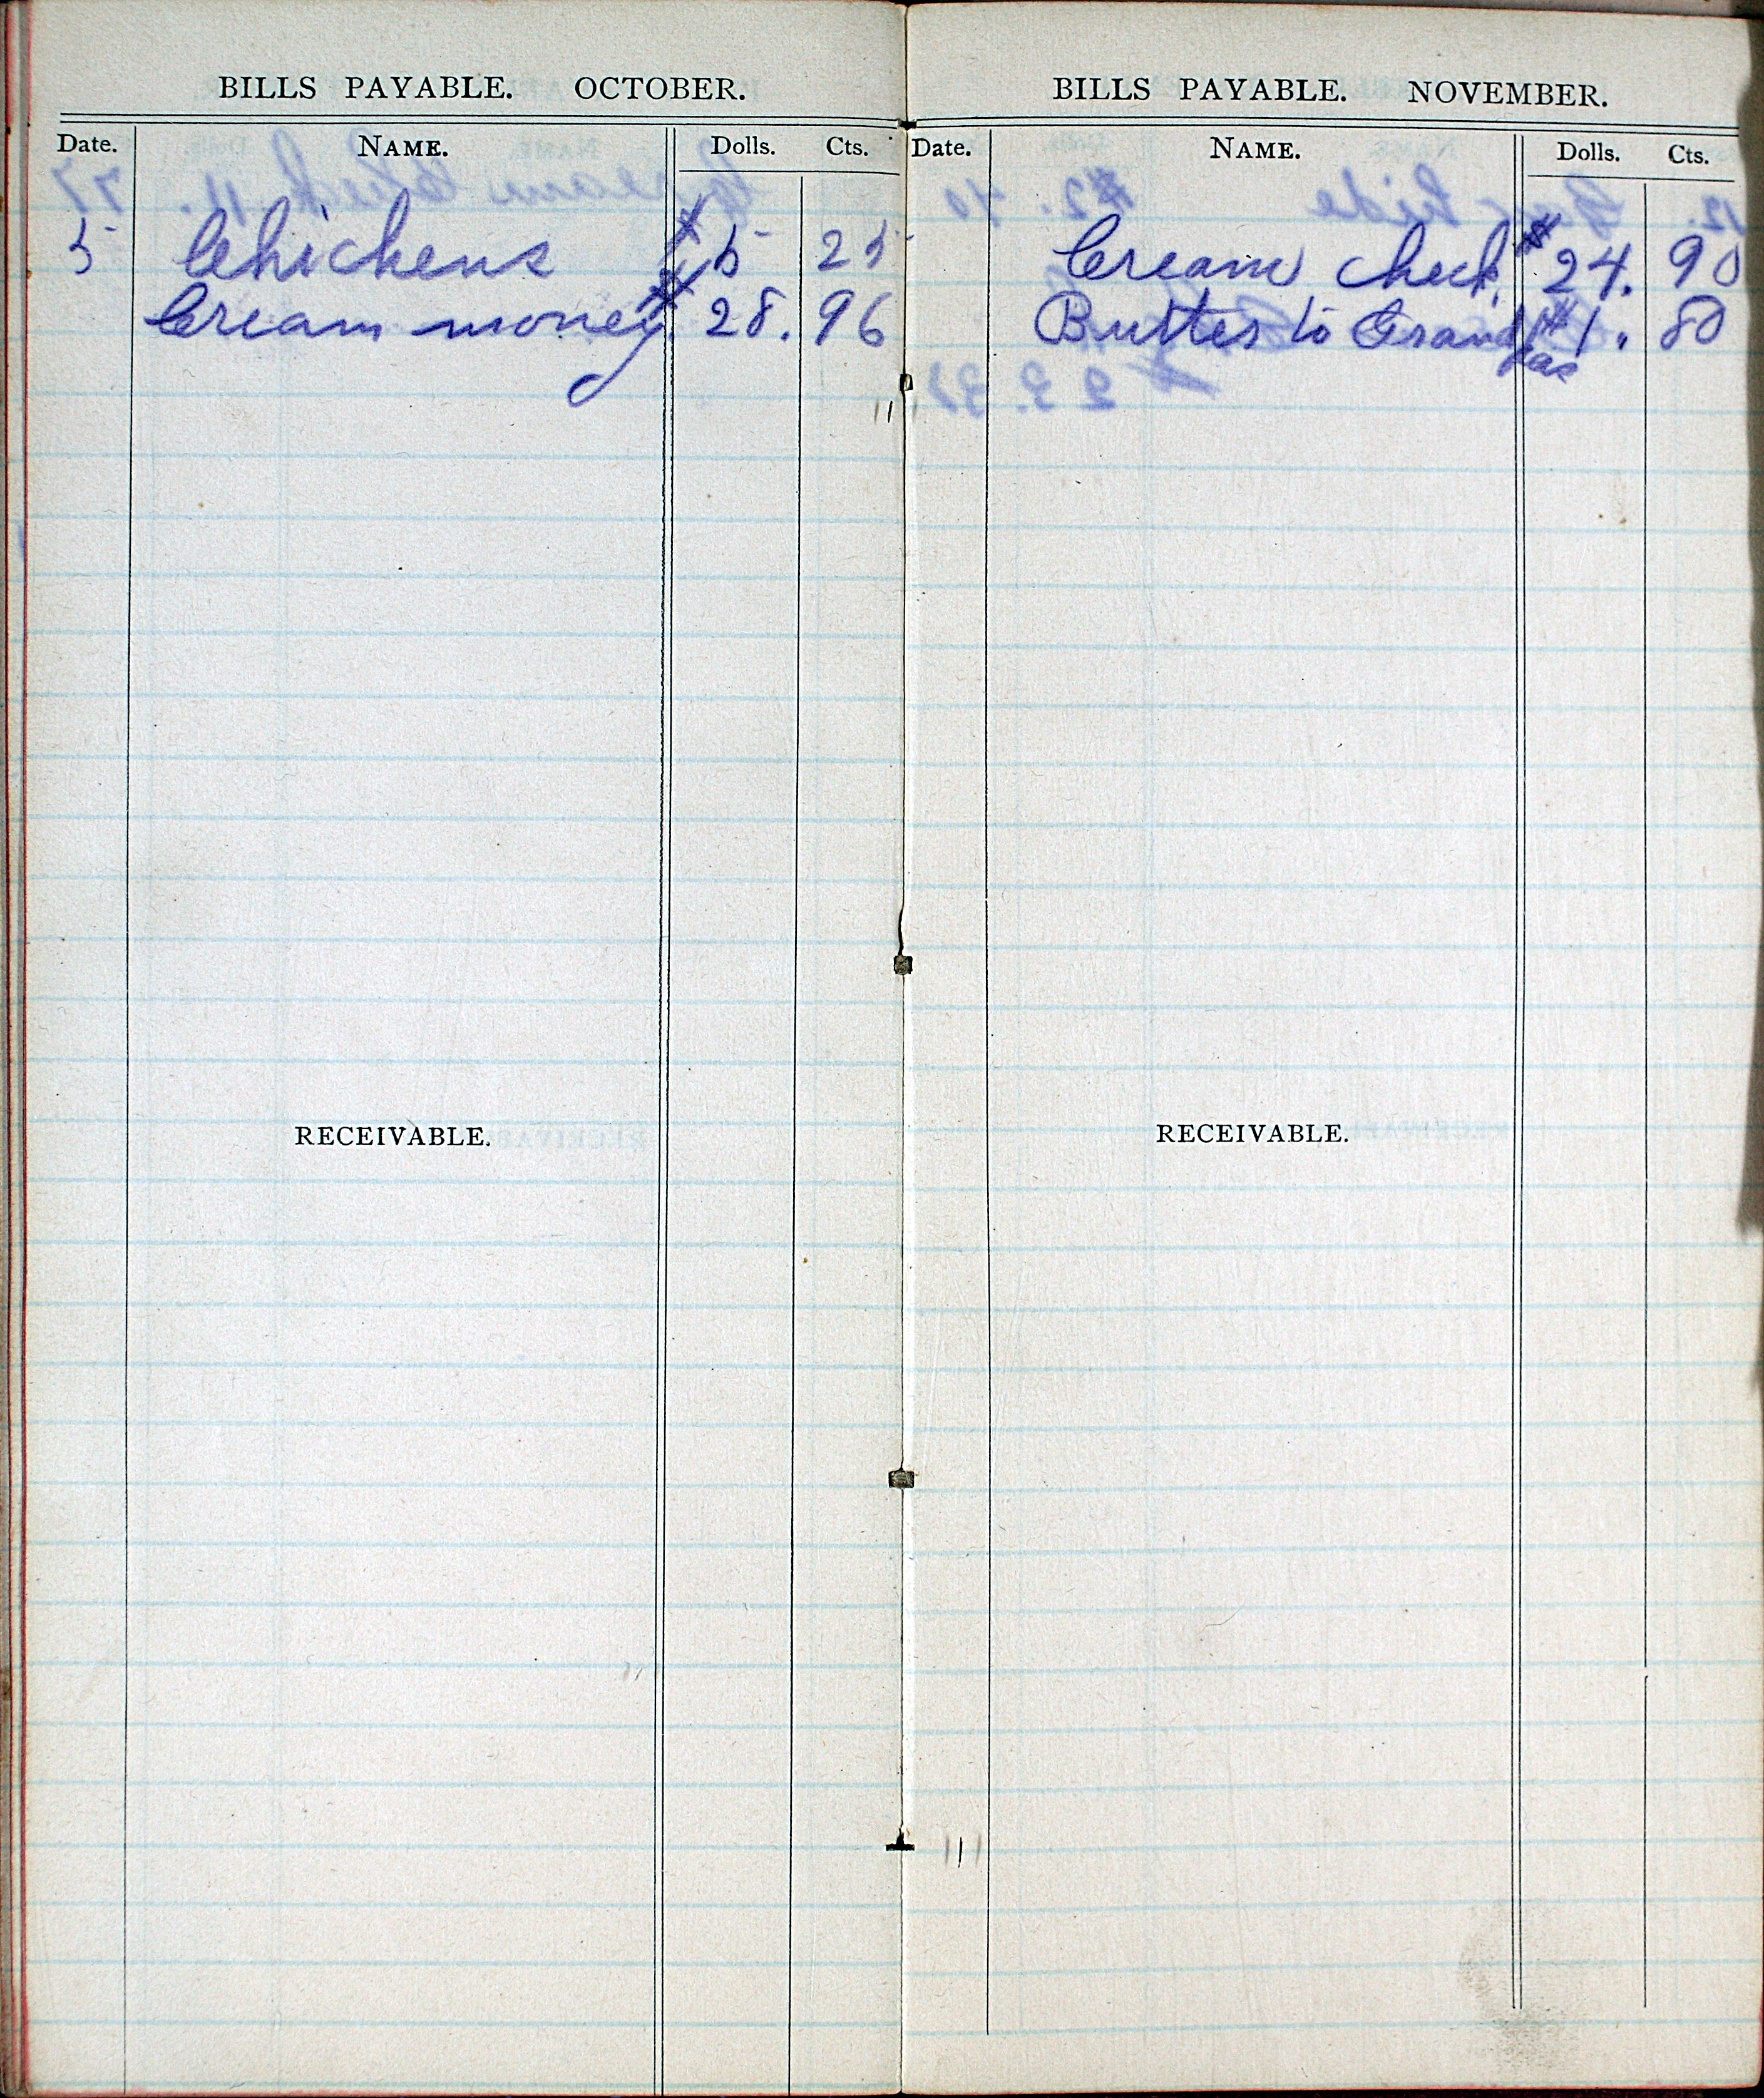 BILLS PAYABLE. OCTOBER.
Date. NAME. Dolls. Cts.
5 Chickens $ 5 25
Cream money. $ 28. 96
RECEIVABLE.
BILLS PAYABLE. NOVEMBER.
Date. NAME. Dolls. Cts.
Cream check, $ 24. 90
Butter to Grand $ 1. 80
pas
RECEIVABLE.